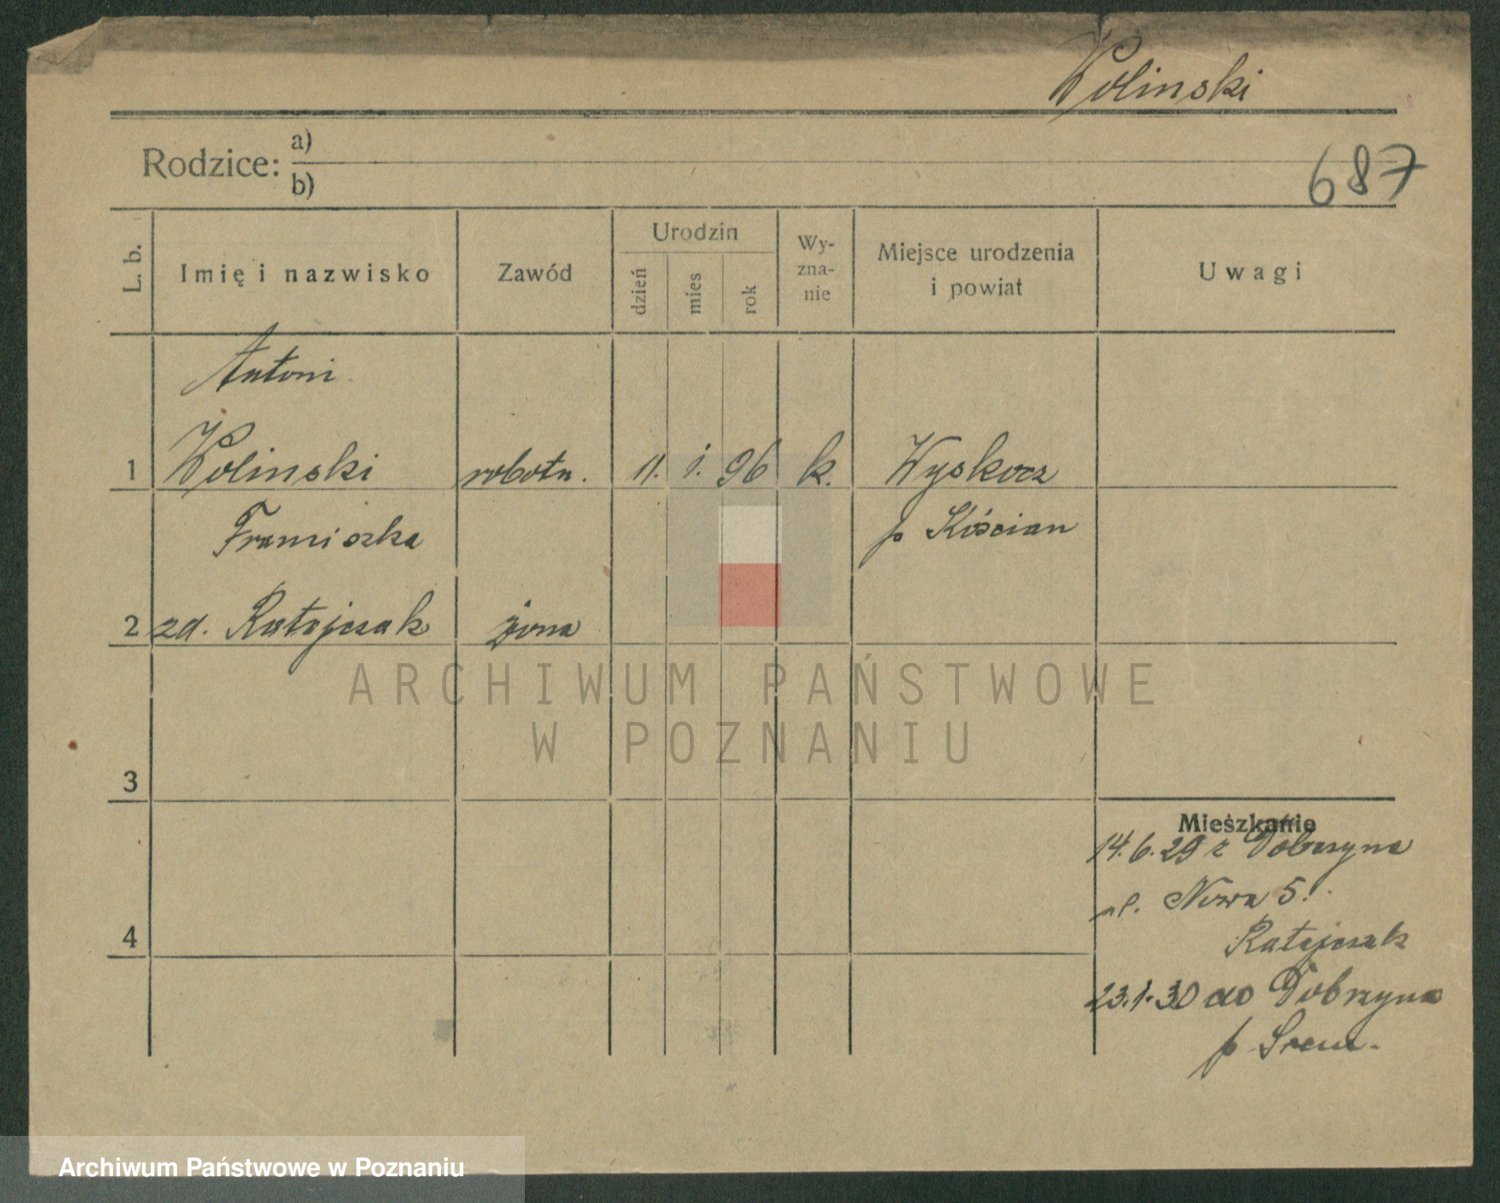 Wolinski
Rodzice: a)
b)
687
L. b. Imię i nazwisko Zawód Urodzin dzień mies rok Wy-zna-nie Miejsce urodzenia i powiat Uwagi
Antoni
1 Wolinski robotn. 11. 1. 96 k. Wyskocz
Franciszka p Kościan
2 zd. Ratajczak żona
3
Mieszkanie
14.6.29 z Dobrzyna
ul. Nowa 5.
4 Ratajczak
23.1.30 do Dobrzyna
p Srem.
ARCHIWUM PAŃSTWOWE
W POZNANIU
Archiwum Państwowe w Poznaniu